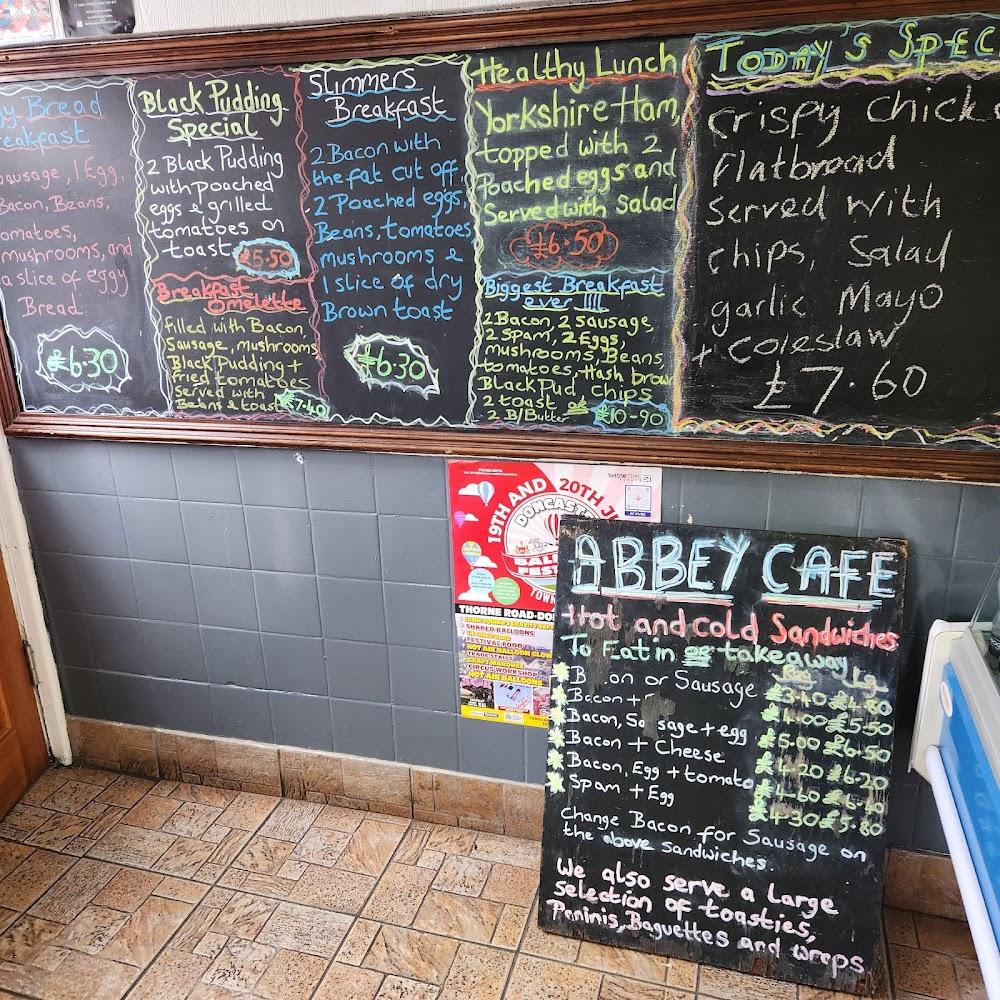 Bread
Sausage, 1 Egg,
Bacon, Beans,
mushrooms, and
a slice of eggy
Bread.
£6.30
Black Pudding
Special
2 Black Pudding
with poached
eggs & grilled
tomatoes on
toast £5.50
Breakfast
Omelette
filled with Bacon
Sausage, mushrooms
Black Pudding +
fried tomatoes
served with
Beans & toast £7.40
Slimmers
Breakfast
2 Bacon with
the fat cut off
2 Poached eggs,
Beans, tomatoes
mushrooms &
1 slice of dry
Brown toast
£6.30
Healthy Lunch
Yorkshire Ham,
topped with 2
Poached eggs and
Served with Salad
£6.50
Biggest Breakfast
ever !!!!
2 Bacon, 2 Sausage
2 Spam, 2 Eggs,
mushrooms, Beans,
tomatoes, Hash brow
Black Pud, chips
2 toast or
2 B/Butter £10-90
Today's Spec
Crispy chick
flatbread
Served with
chips, Salad
garlic Mayo
+ coleslaw
£7.60
SHOWTIME
EVENTS
19TH AND 20TH J
DONCAST
BALL
FEST
TOWN
THORNE ROAD-DO
SHARED BALLOONS
FESTIVAL FOOD
HOT AIR BALLOON GLOW
TRADE STALLS
CRAFT MARQUEE
CIRCUS WORKSHOP
HOT AIR BALLOONS
ABBEY CAFE
Hot and cold Sandwiches
To Eat in or takeaway
Lg
B on or Sausage £3.40 £4.80
Bacon + £4.00 £5.50
Bacon, Sa sage + egg £5.00 £6.50
Bacon + Cheese £4.20 £6.20
Bacon, Egg + tomato £4.60
Spam + Egg £4.30 £5.80
Change Bacon for Sausage on
the above sandwiches.
We also serve a Large
Selection of toasties,
Paninis, Baguettes and wraps